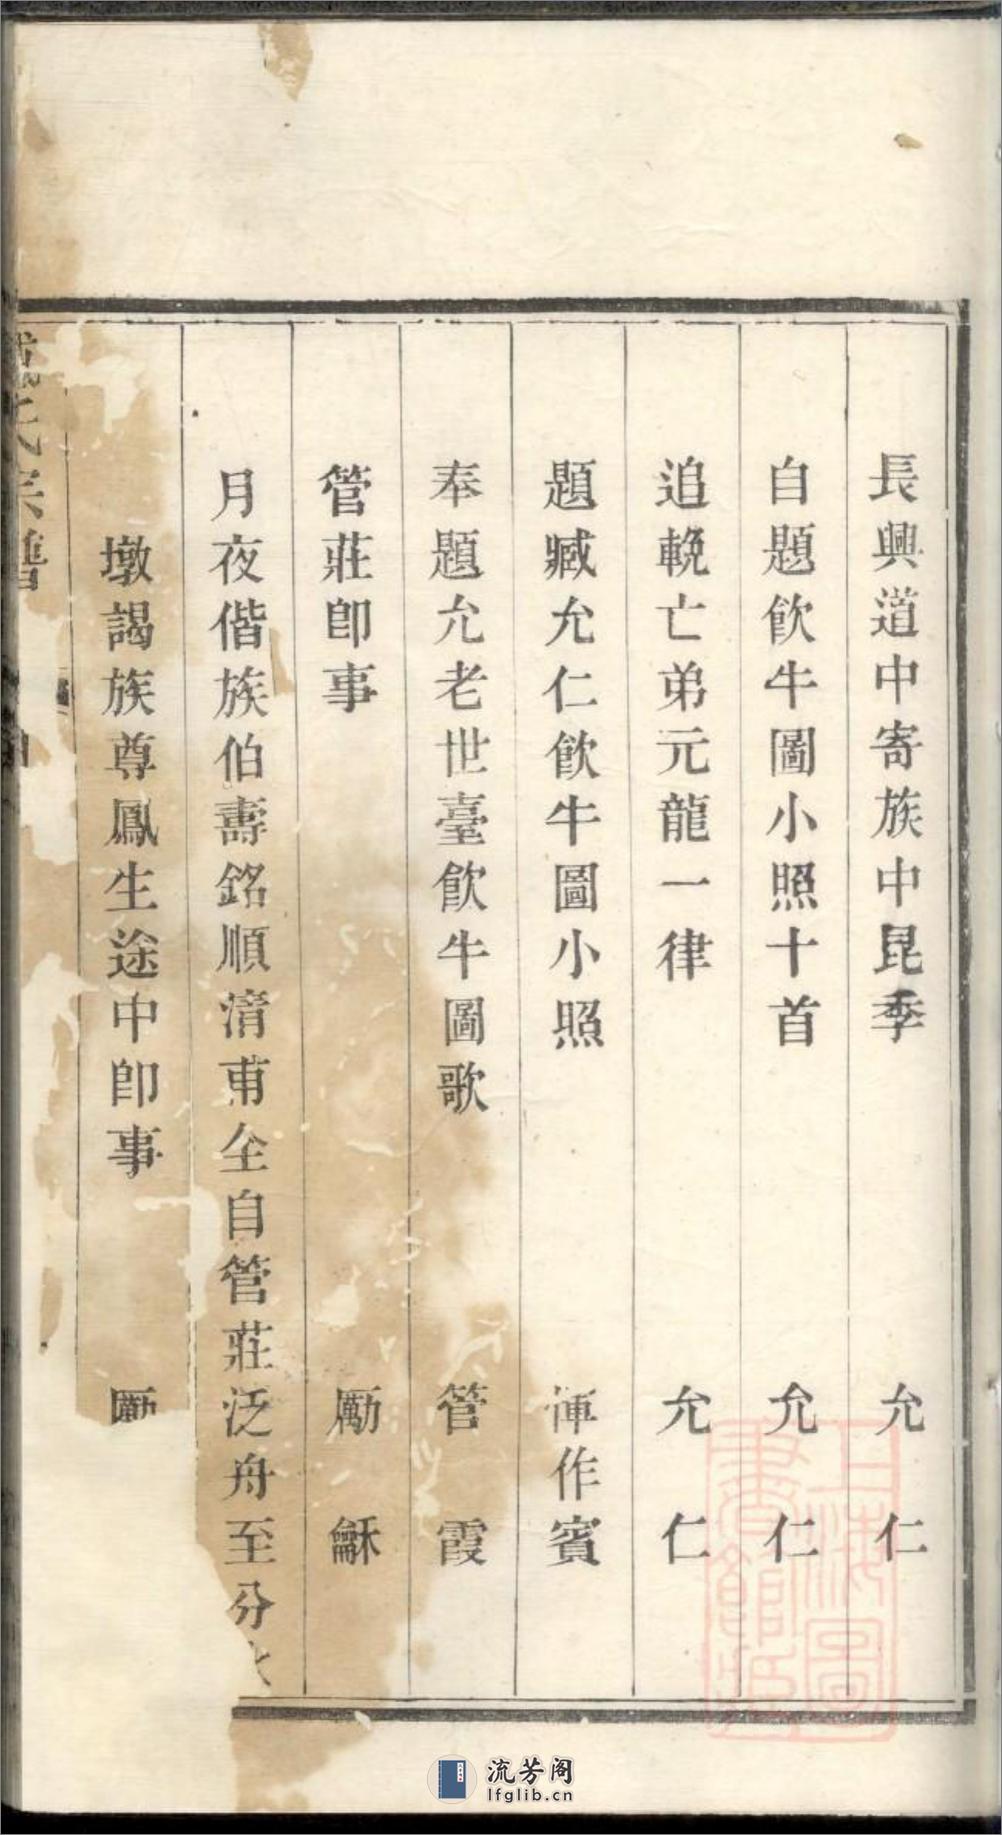 長興道中寄族中昆季 允仁
自題飲牛圖小照十首 允仁
追輓亡弟元龍一律 允仁
題臧允仁飲牛圖小照 惲作賓
奉題允老世臺飲牛圖歌 管霞
管莊卽事 勵龢
月夜偕族伯壽銘順淸甫仝自管莊泛舟至分水
墩謁族尊鳳生途中卽事 勵
氏宗譜
上海圖書館藏
流芳阁
lfglib.cn